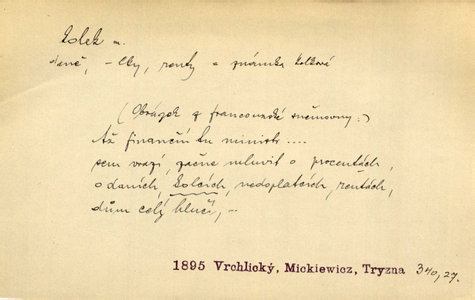 kolek m.
daně, -lky, renty a známka kolková
(Obrázek z francouzské sněmovny:)
Až finanční tu ministr ....
sem vrazí, začne mluvit o procentách,
o daních, kolcích, nedoplatcích, rentách,
dům celý hlučí, –
1895 Vrchlický, Mickiewicz, Tryzna 340,27.